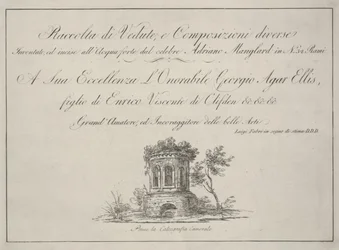 Raccolta di Vedute, e Composizioni diverse
Inventate ed incise all'Acqua forte dal celebre Adriano Manglard in N.º 52 Rami
A Sua Eccellenza L'Onorabile Georgio Agar Ellis,
figlio di Enrico Visconte di Clifden &c &c &c
Grand'Amatore, ed Incoraggitore delle belle Arte
Luigi Fabri in segno di stima D.D.D.
Presso la Calcografia Camerale